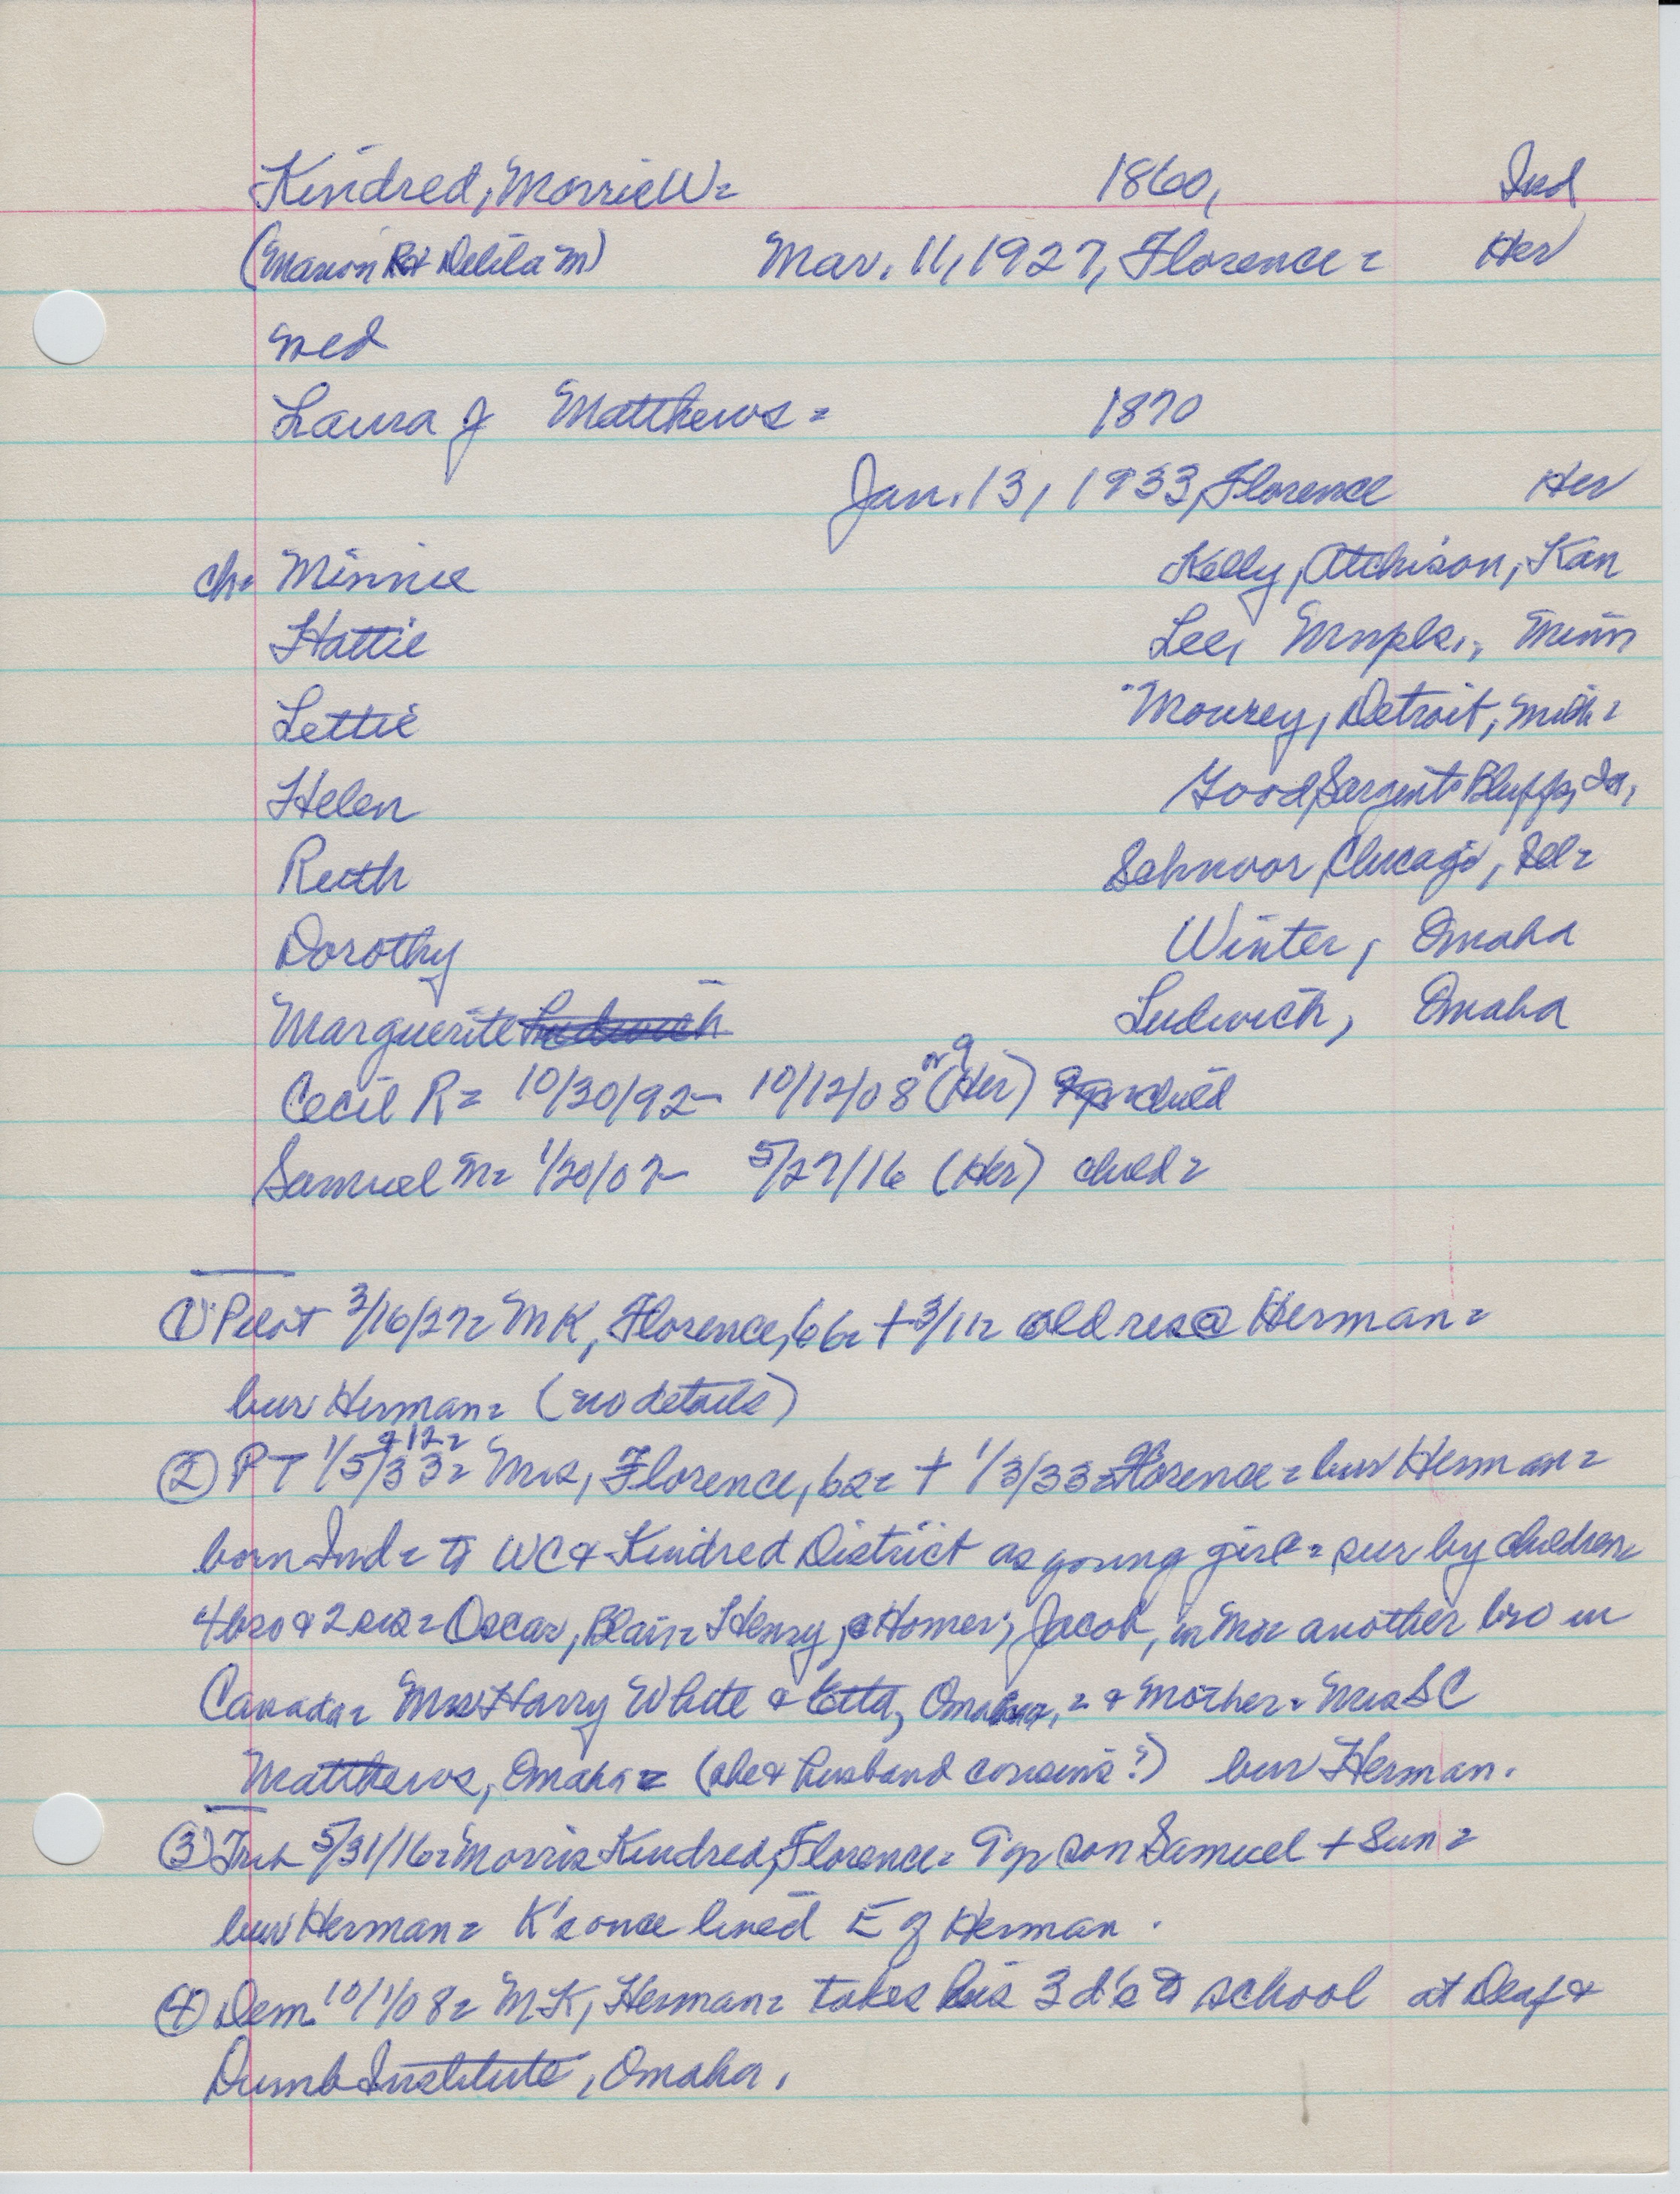 Kindred, Morris W= 1860, Ind
(Marion R & Delila M) Mar. 11, 1927, Florence= Her
med
Laura J Matthews= 1870
Jan. 13, 1933, Florence Her
ch= Minnie Kelly, Atchison, Kan
Hattie Lee, Mnpls., Minn
Lettie Mourey, Detroit, Mich=
Helen Good, Sargents Bluffs, Ia,
Ruth Schnoor, Chicago, Ill=
Dorothy Winter, Omaha
Marguerite Ludwich, Omaha
Cecil R= 10/30/92- 10/12/08 or 9 (Her) child
Samuel M= 1/20/07- 5/27/16 (Her) child=
① Pilot 3/16/27= MK, Florence, 66= + 3/11= old res @ Herman=
bur Herman= (no details)
② PT 1/5/33= & 12= Mrs, Florence, 62= + 1/3/33= Florence= bur Herman=
born Ind= to WC & Kindred District as young girl= sur by children=
4 bro & 2 sis= Oscar, Blair= Henry, & Homer; Jacob, in Mo= another bro in
Canada= Mrs Harry White & Etta, = & mother= Mrs SC
Matthews, Omaha= (she & husband cousins?) bur Herman.
③ Trib 5/31/16= Morris Kindred, Florence= 9 yr son Samuel + Sun=
bur Herman= K's once lived E of Herman.
④ Dem. 10/1/08= MK, Herman= takes his 3 d's to school at Deaf &
Dumb Institute, Omaha.